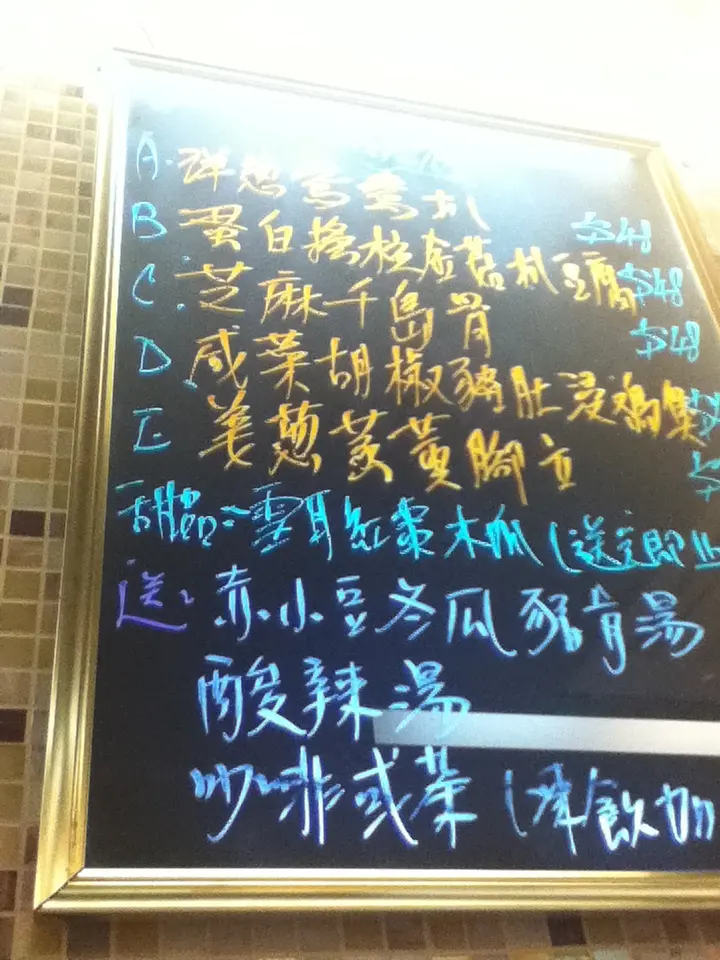 A. 鴛鴦扒 $48
B 蛋白 扒豆腐 $48
C 芝麻千島骨 $48
D 咸菜胡椒豬肚浸鸡煲
E 姜葱 腳立
甜品：雪耳紅棗木瓜（送完即止
送：赤小豆冬瓜豬骨湯
酸辣湯
咖啡或茶（凍飲加